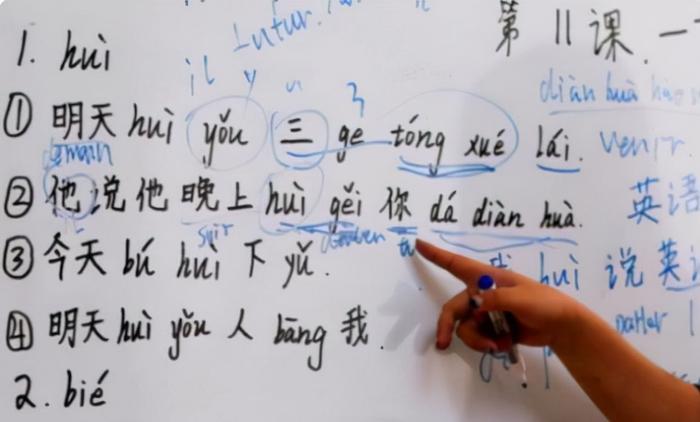 futur.
第11课.一
1. huì
il y
diàn huà hào
① 明天 huì yǒu 三 ge tóng xué lái. venir.
demain
② 他说他晚上 huì gěi 你 dá diàn huà. 英语
soir tu
③ 今天 bú huì 下 yǔ. huì 说英语
④ 明天 huì yǒu 人 bāng 我.
2. bié